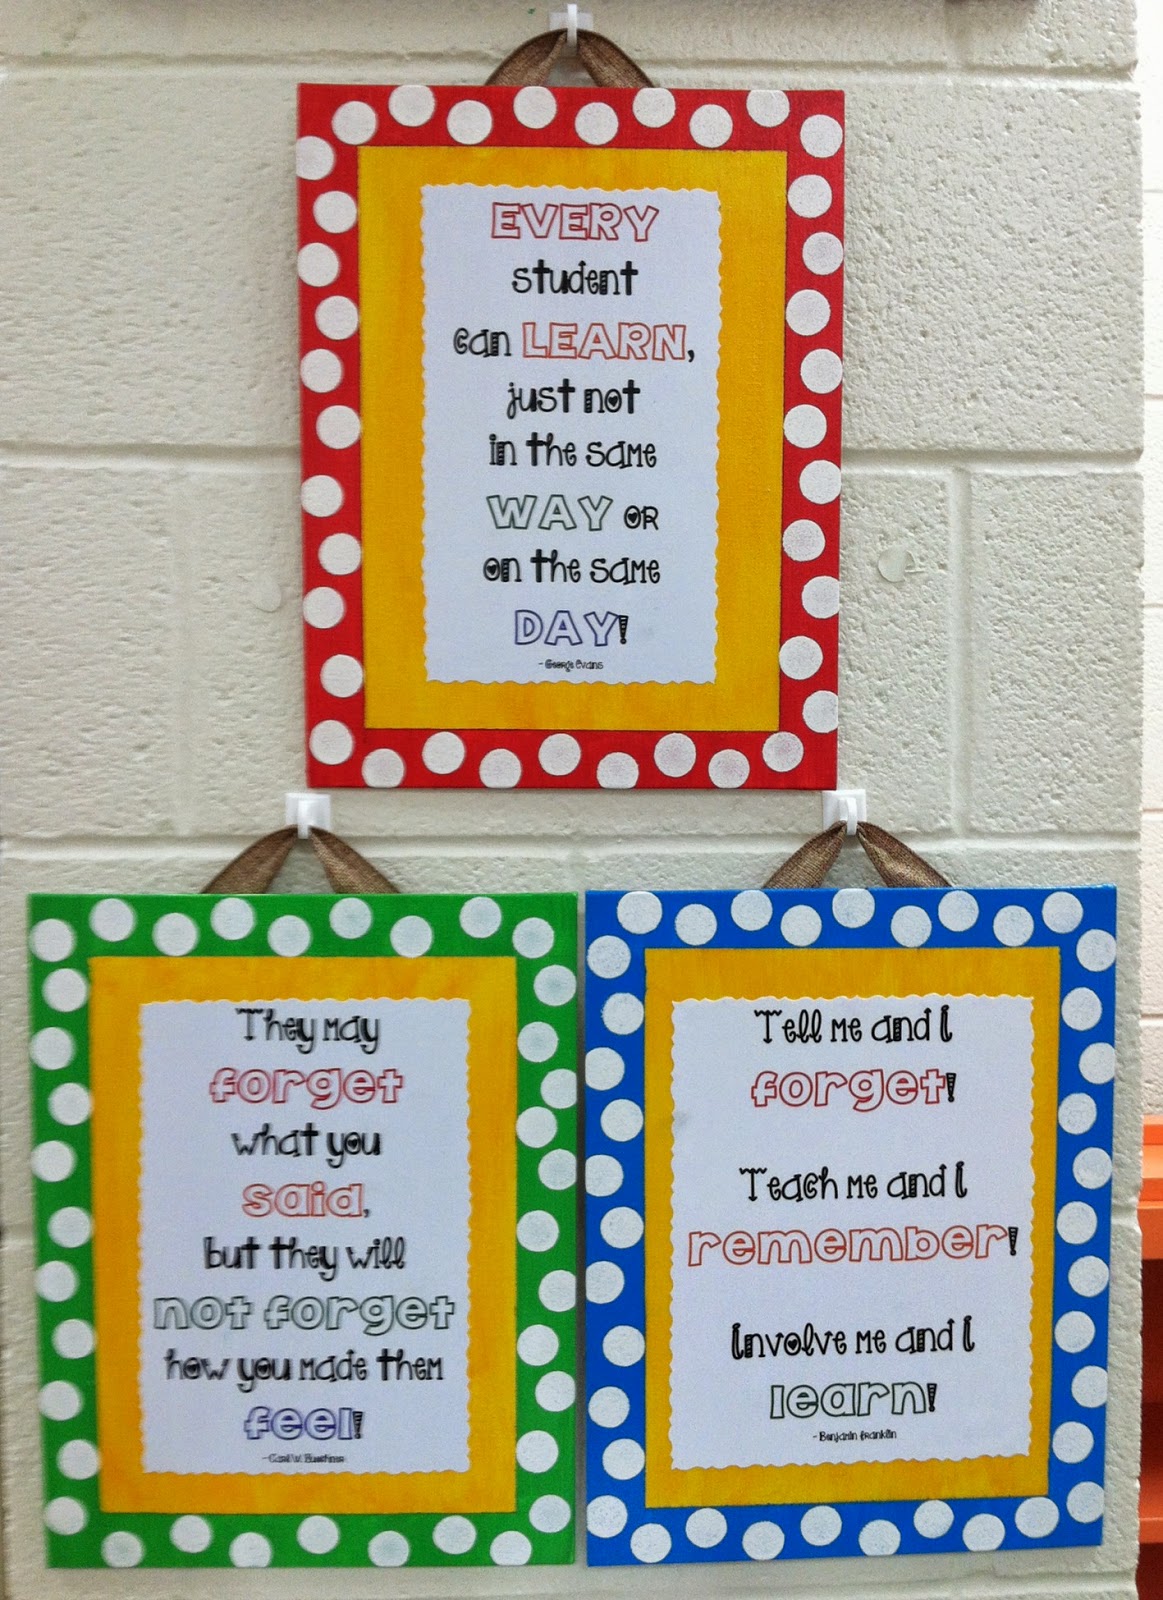 EVERY
student
can LEARN,
just not
in the same
WAY or
on the same
DAY!
- George Evans
They may
forget
what you
said,
but they will
not forget
how you made them
feel!
- Carl W. Buechner
Tell me and I
forget!
Teach me and I
remember!
Involve me and I
learn!
- Benjamin Franklin